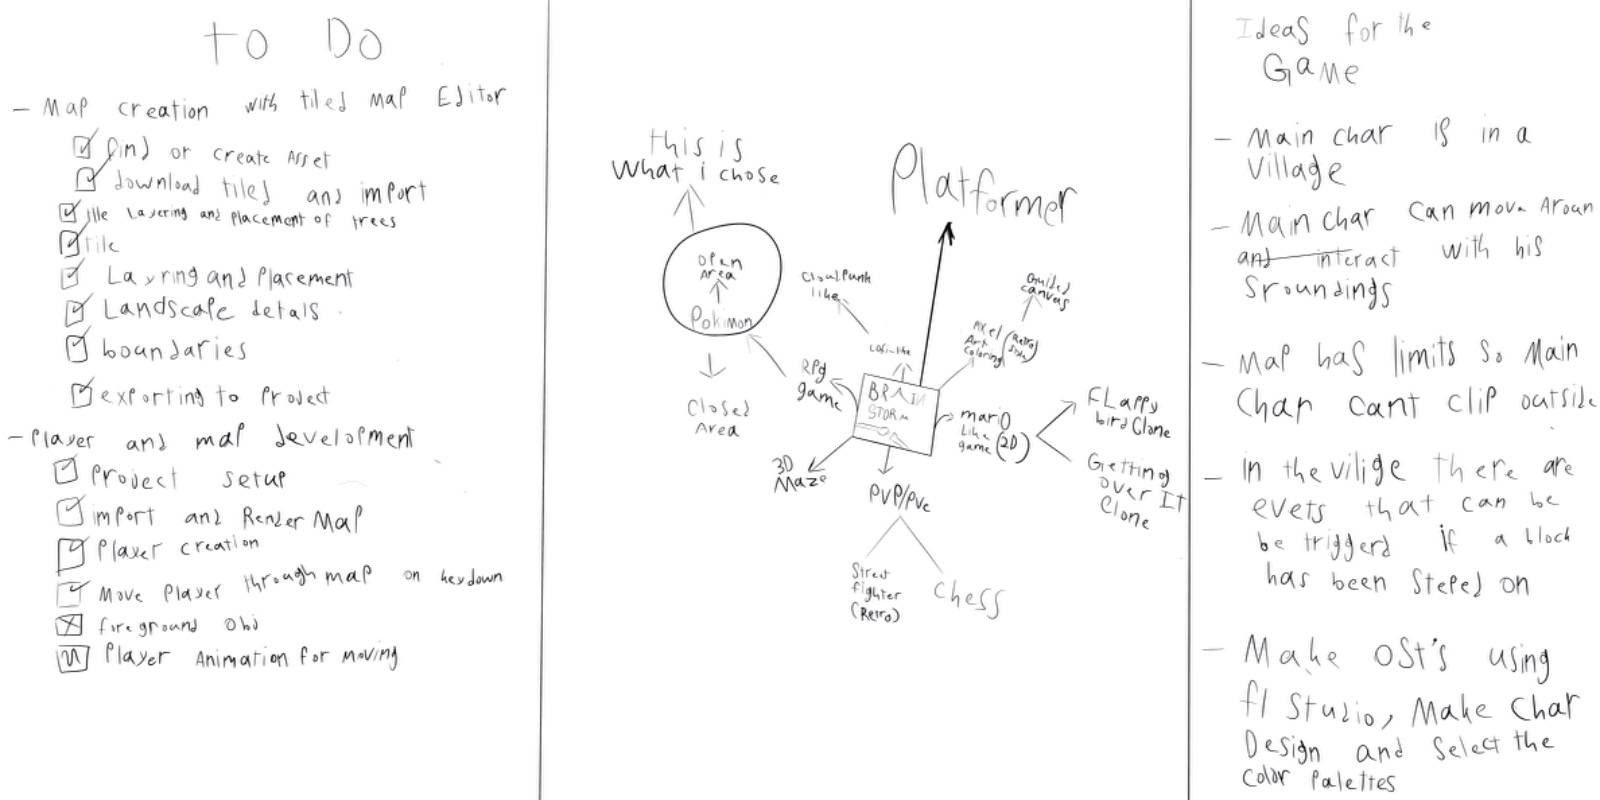 TO DO
- Map creation with tiled map Editor
find or create Asset
download tiled and import
tile Layering and Placement of trees
tile
Layring and Placement
Landscape detals
boundaries
exporting to Project
- Player and map development
Project setup
import and Render Map
Player creation
Move Player through map on keydown
foreground Obj
Player Animation for moving
this is
what i chose
open
Area
Pokimon
Closed
Area
RPg
game
CloudPunk
like
Lofi-like
Platformer
Guided
canvas
Pixel (Retro
Art Side)
Coloring
BRAIN
STORM
mario
Like
game (2D)
FLappy
bird Clone
Getting
Over It
Clone
3D
Maze
PvP/Pve
Street
fighter
(Retro)
chess
Ideas for the
Game
- Main char is in a
Village
- Main char can move Aroun
and interact with his
Sroundings
- Map has limits so Main
Char cant clip outside
- in the vilige there are
evets that can be
be triggerd if a block
has been Steped on
- Make OSt's using
fl Studio, Make Char
Design and Select the
color Palettes